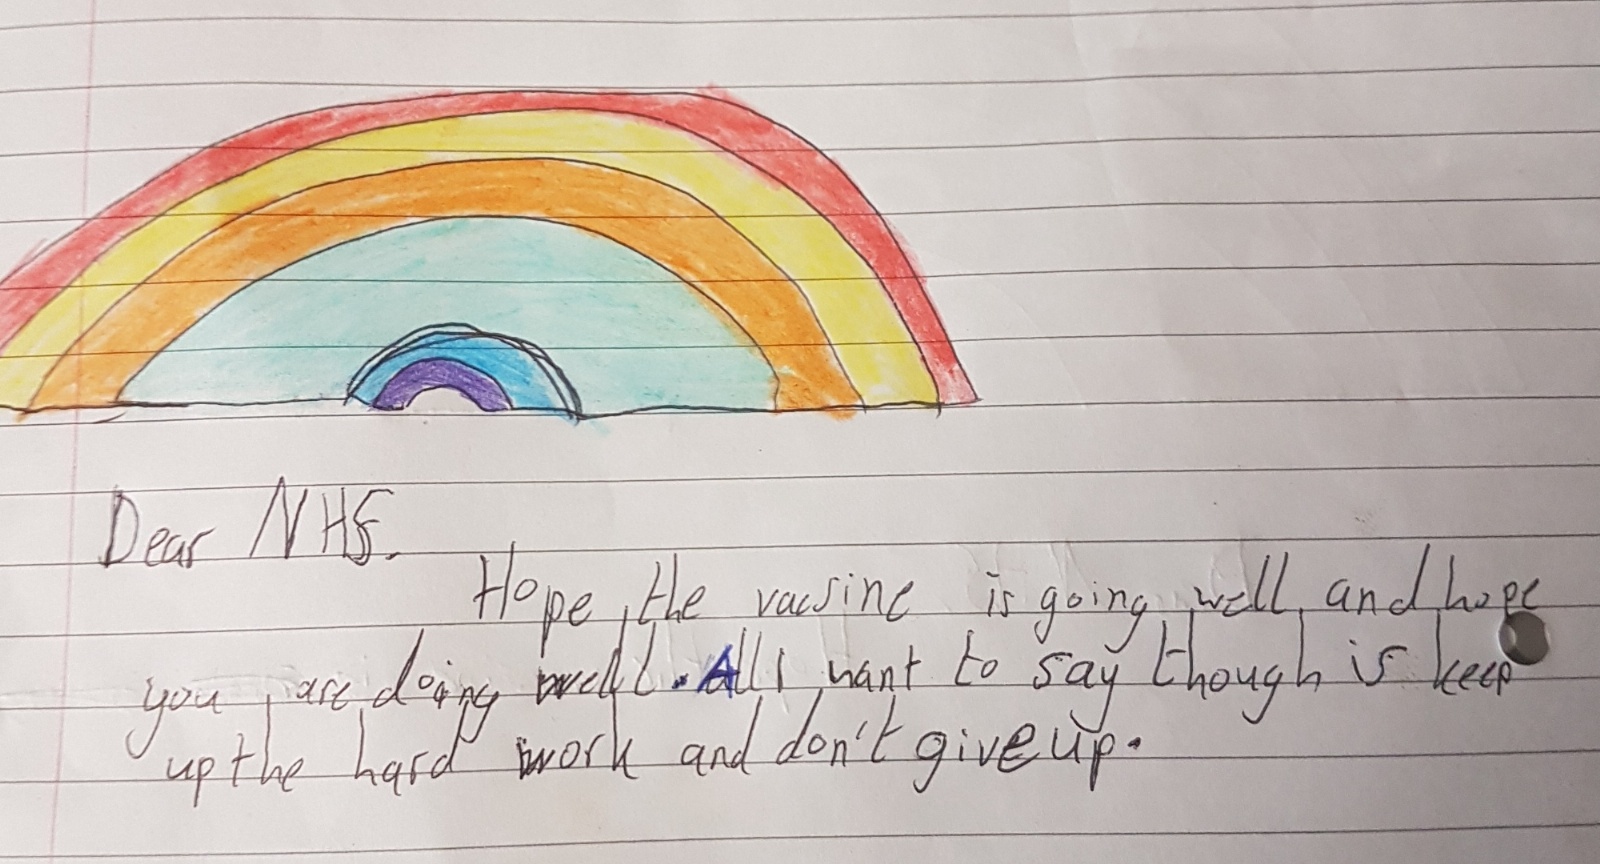 Dear NHS.
Hope the vacsine is going well and hope
you are doing well. All I want to say though is keep
up the hard work and don't give up.